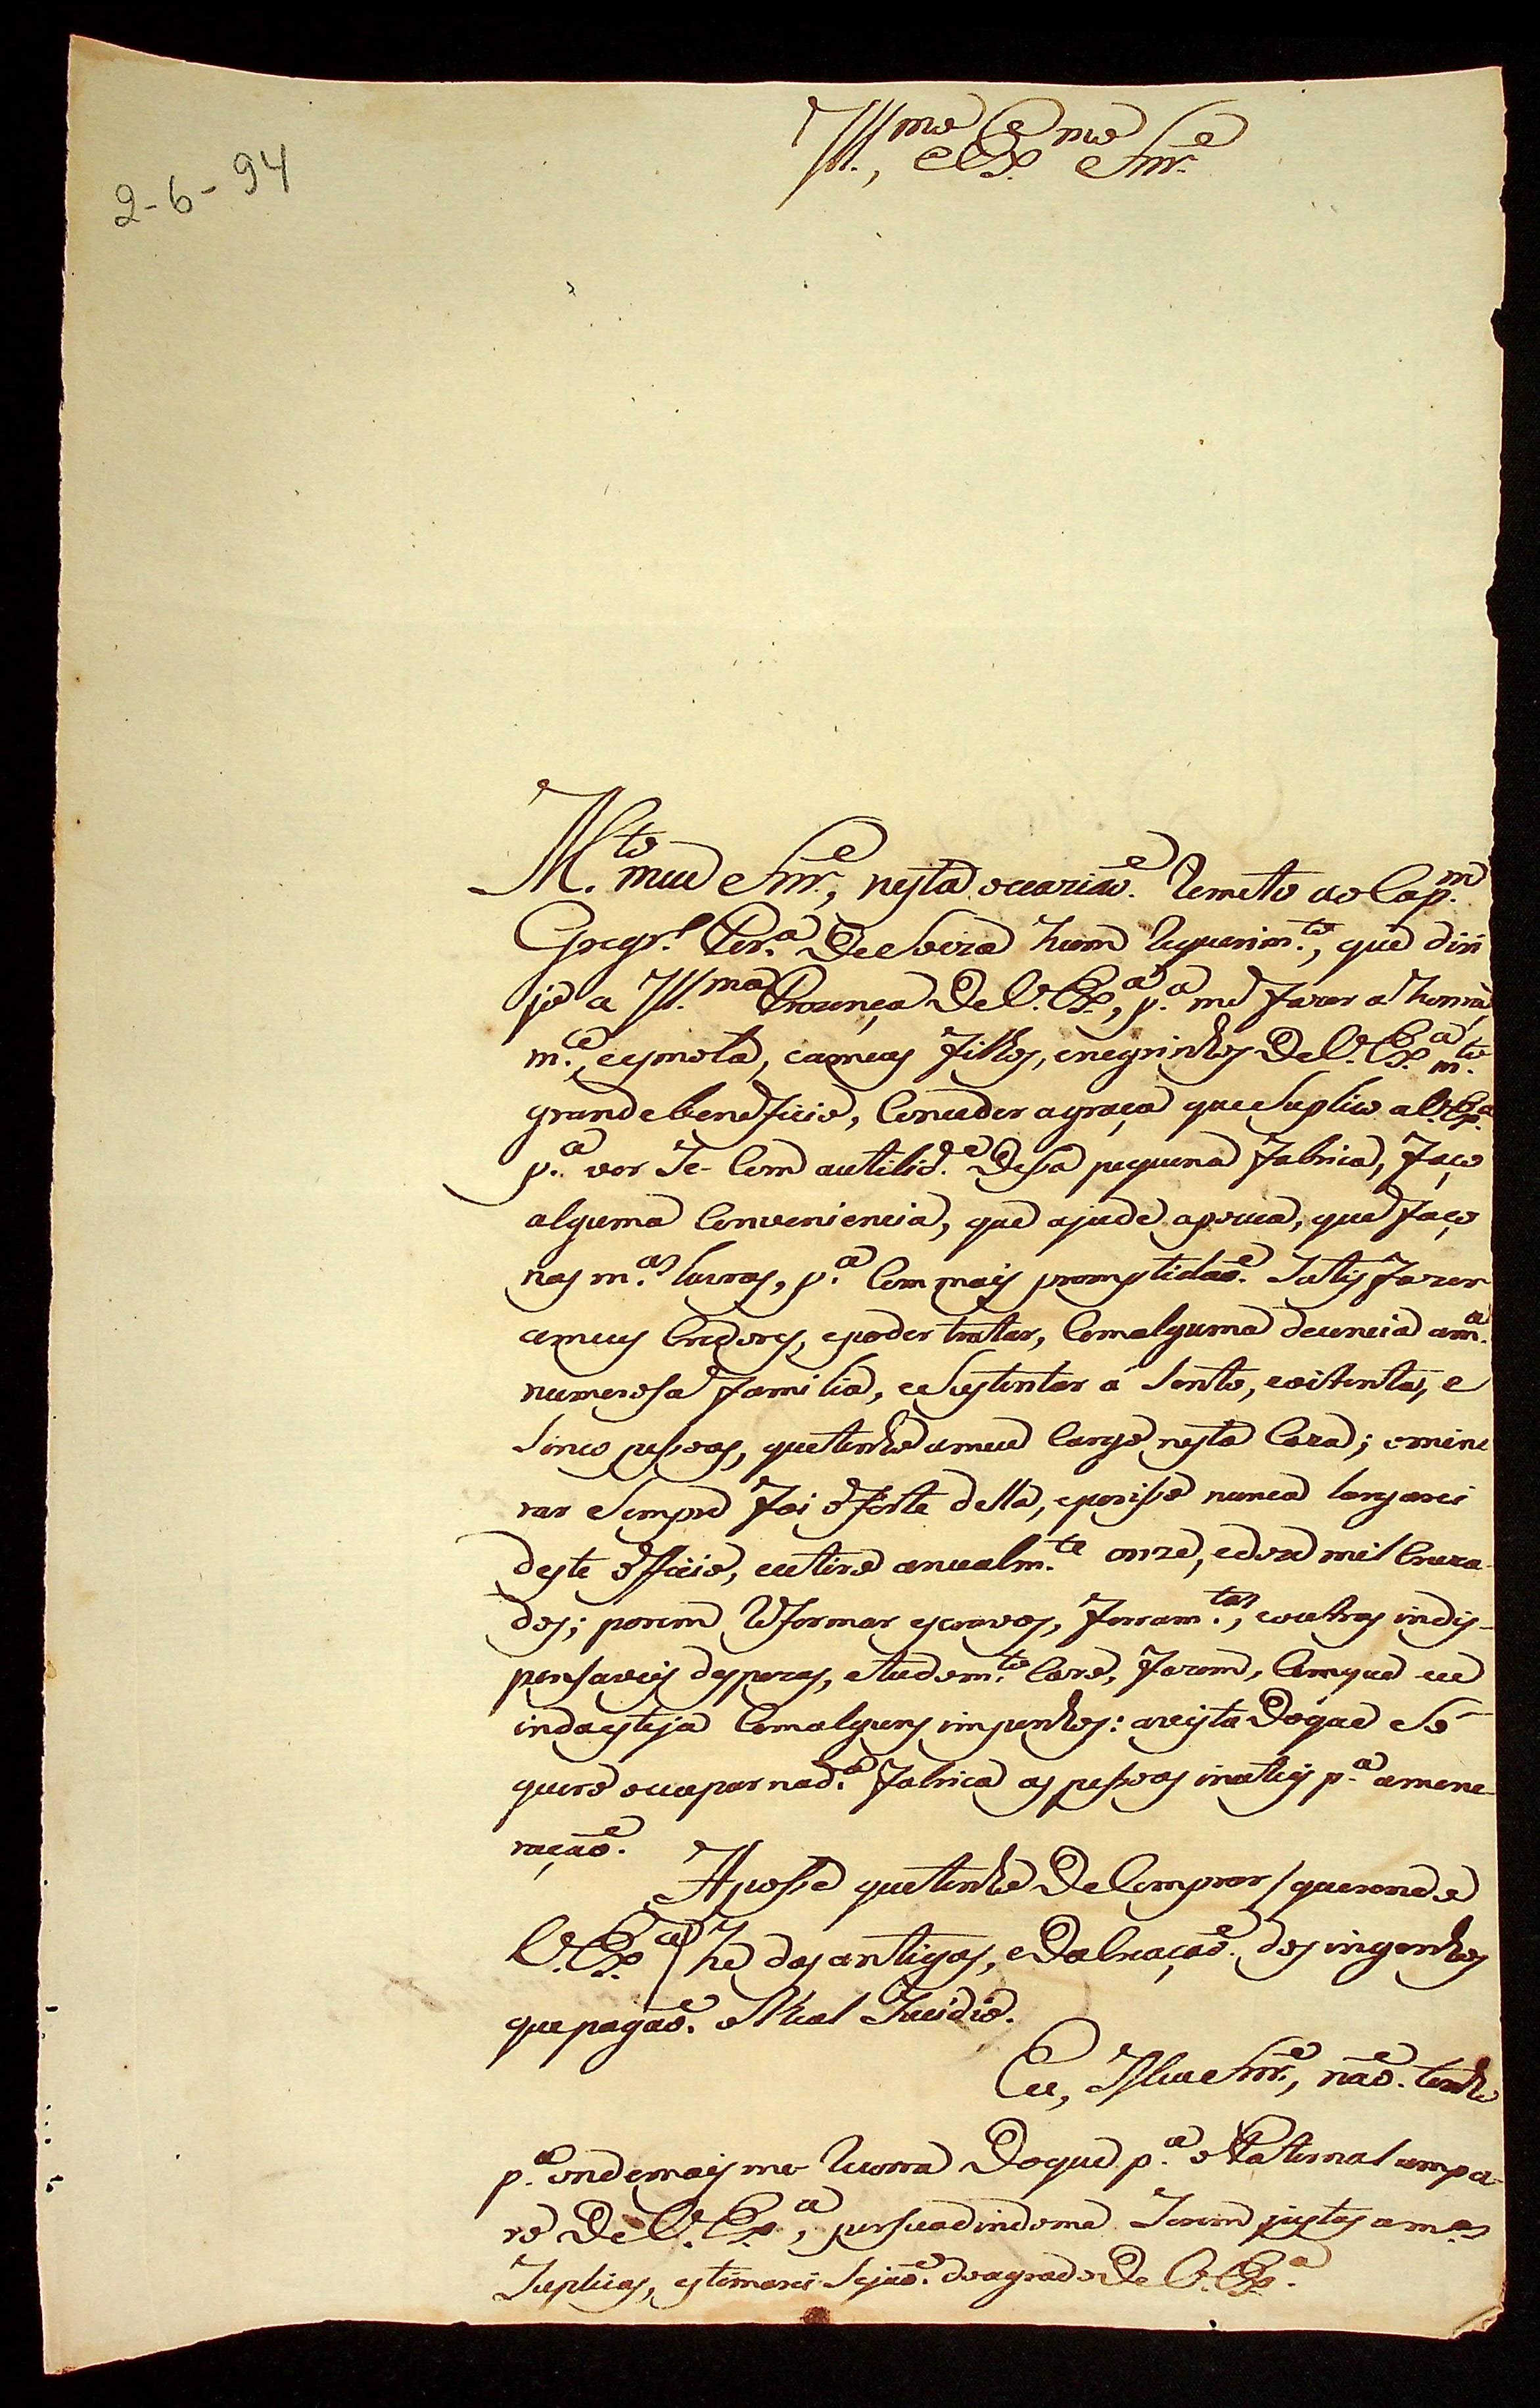 2-6-94
Ill.mo e Ex.mo Snr.e
M.to meu Snr.e, nesta ocaziaõ. Remeto ao Cap.m
Gregr.o Per.a De Soiza hum requerim.to, que diri
jo a Ill.ma Prezença De V. Ex.a, p.a me fazer a honra,
m.ce, e esmola, e a meus filhos, e negrinhos De V. Ex.a m.to
grande beneficio, Conceder a graça que Suplico a V. Ex.a
p.a ver Se Com a utilid.e Desa pequena fabrica, faço
alguma Conveniencia, que ajude apouca, que faço
nas m.as lavras, p.a Com mais promptidaõ. Satisfazer
a meus Credores, e poder tratar, Com alguma decencia a m.a
numeroza familia, e Sustentar a Sento, e oitenta, e
Sinco pesoas, que tenho a meu Cargo nesta Caza; o mine
rar Sempre foi o forte della, e por iso nunca largarei
deste officio, e u tiro anualm.te onze, e doze mil Cruza-
dos; porem Reformar escravos, ferram.tas, e outras indis-
pensaveis despezas, e tudo m.to Caro, fazem, Com que eu
inda esteja Com alguns impenhos: a vista Do que So
quero ocupar na d.a fabrica as pesoas inuteis p.a a mene
raçaõ.
A posse que tenho De Comprar / querendo
V. Ex.a / he das antigas, e Da Criaçaõ. dos ingenhos
que pagaõ. o Real Sucidio.
Eu, Meu Snr.e, naõ. tenho
p.a onde mais me Recorra Do que p.a o Paternal ampa-
ro De V. Ex.a, persuadindome Serem justas as m.as
Suplicas, estimarei Sejaõ. do agrado De V. Ex.a